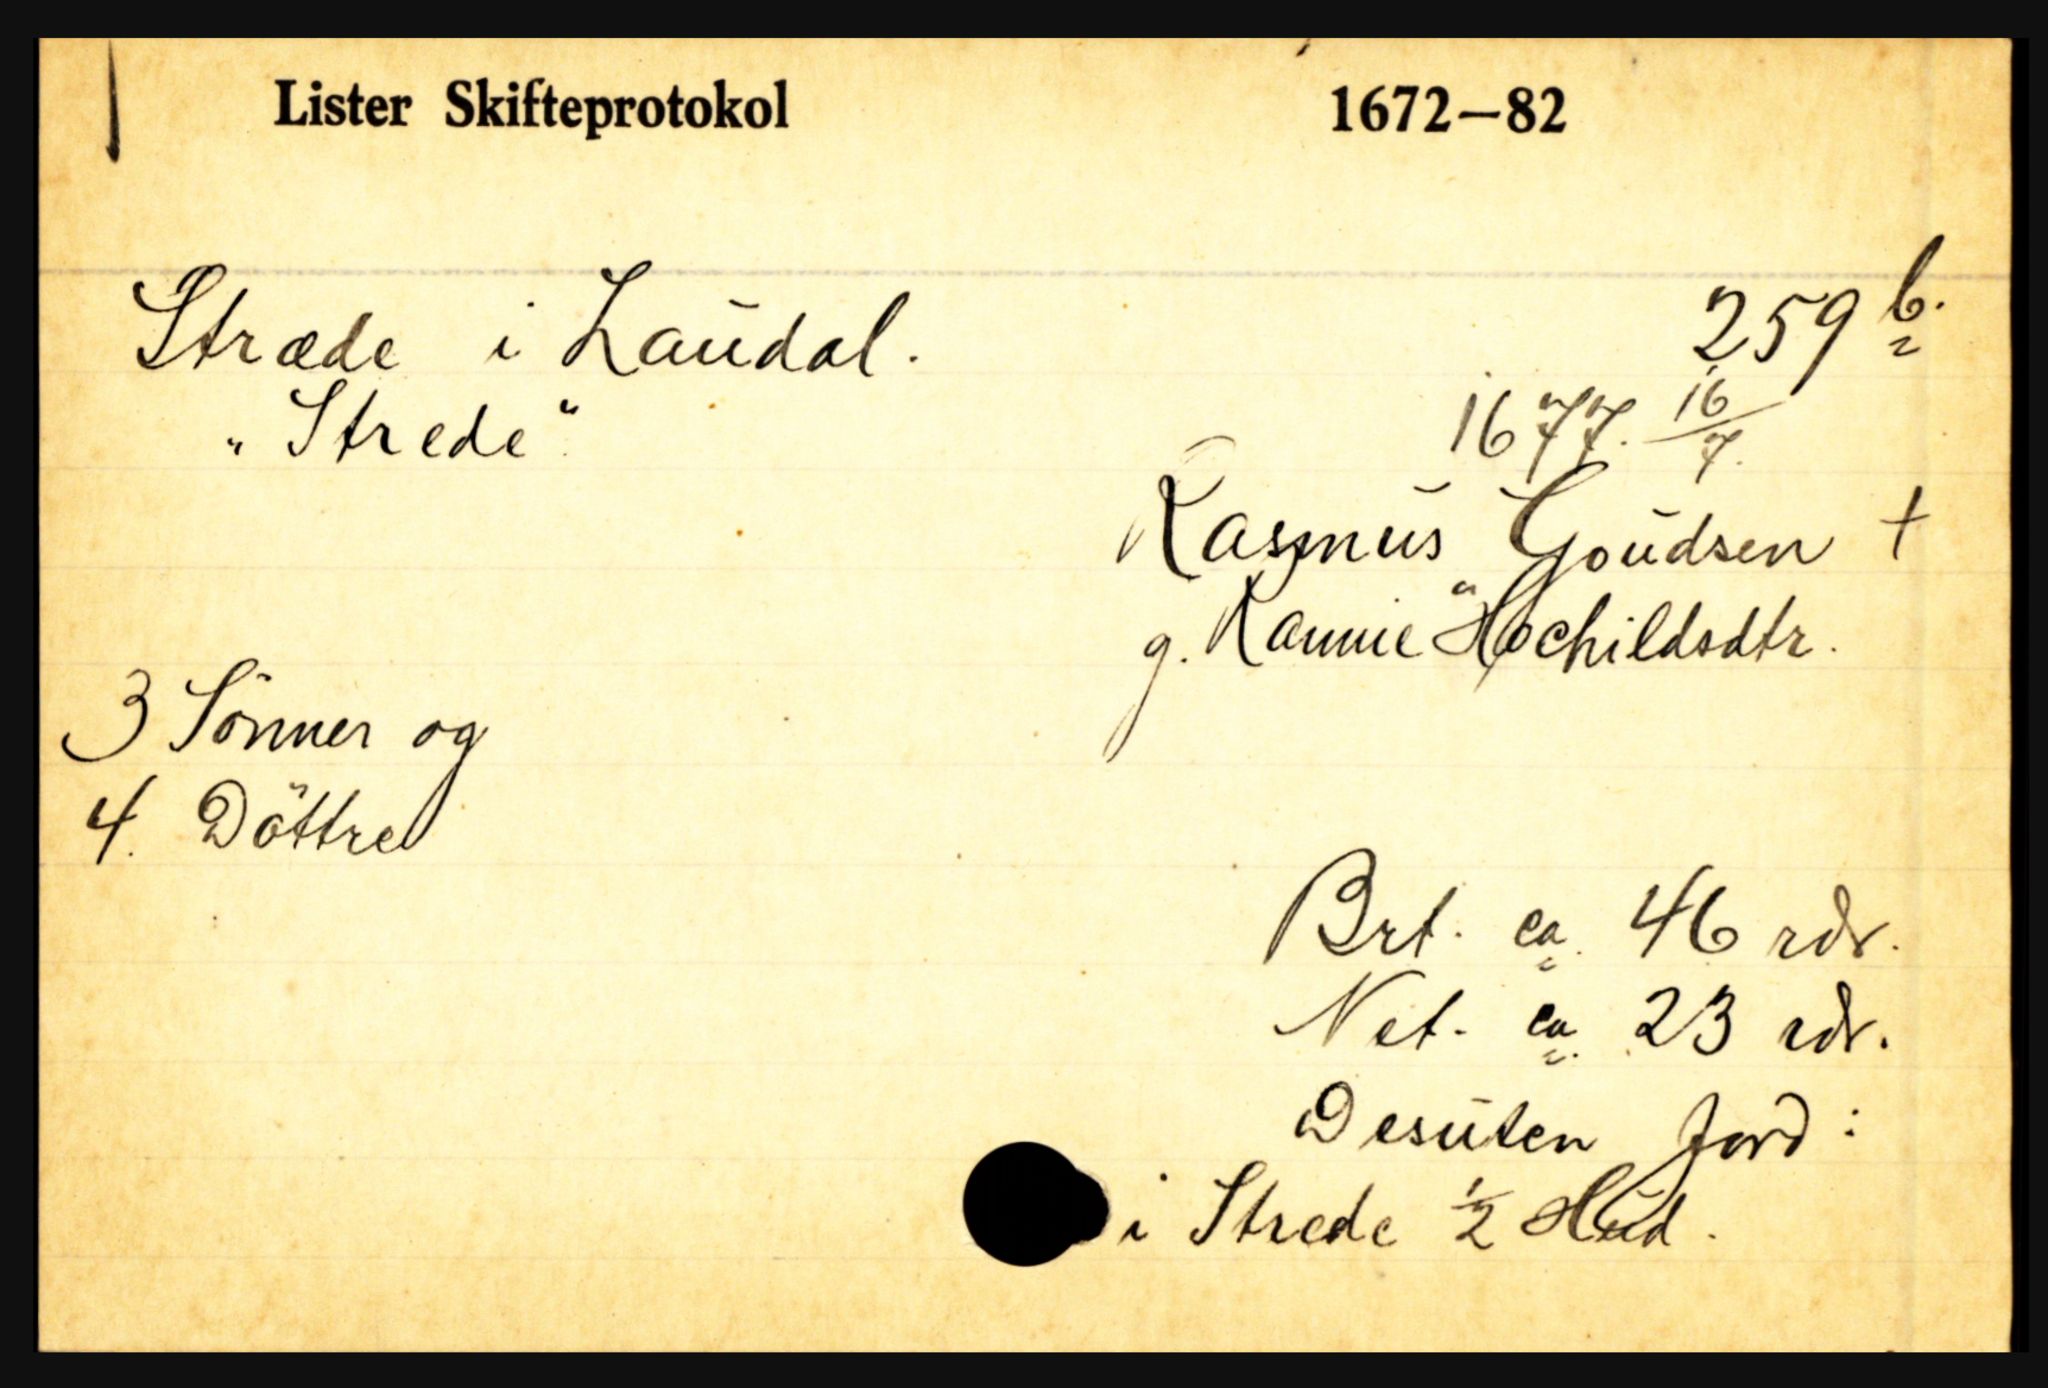 Lister Skifteprotokol 1672—82
Stræde i Laudal.
259 b.
„Strede“
1677. 16/7.
Rasmus Goudsen +
g. Rannie Hochildsdtr.
3 Sönner og
4. Döttre
Brt. ca. 46 rdr.
Net. ca. 23 rdr.
Desuten Jord:
i Strede 1/2 Hud.